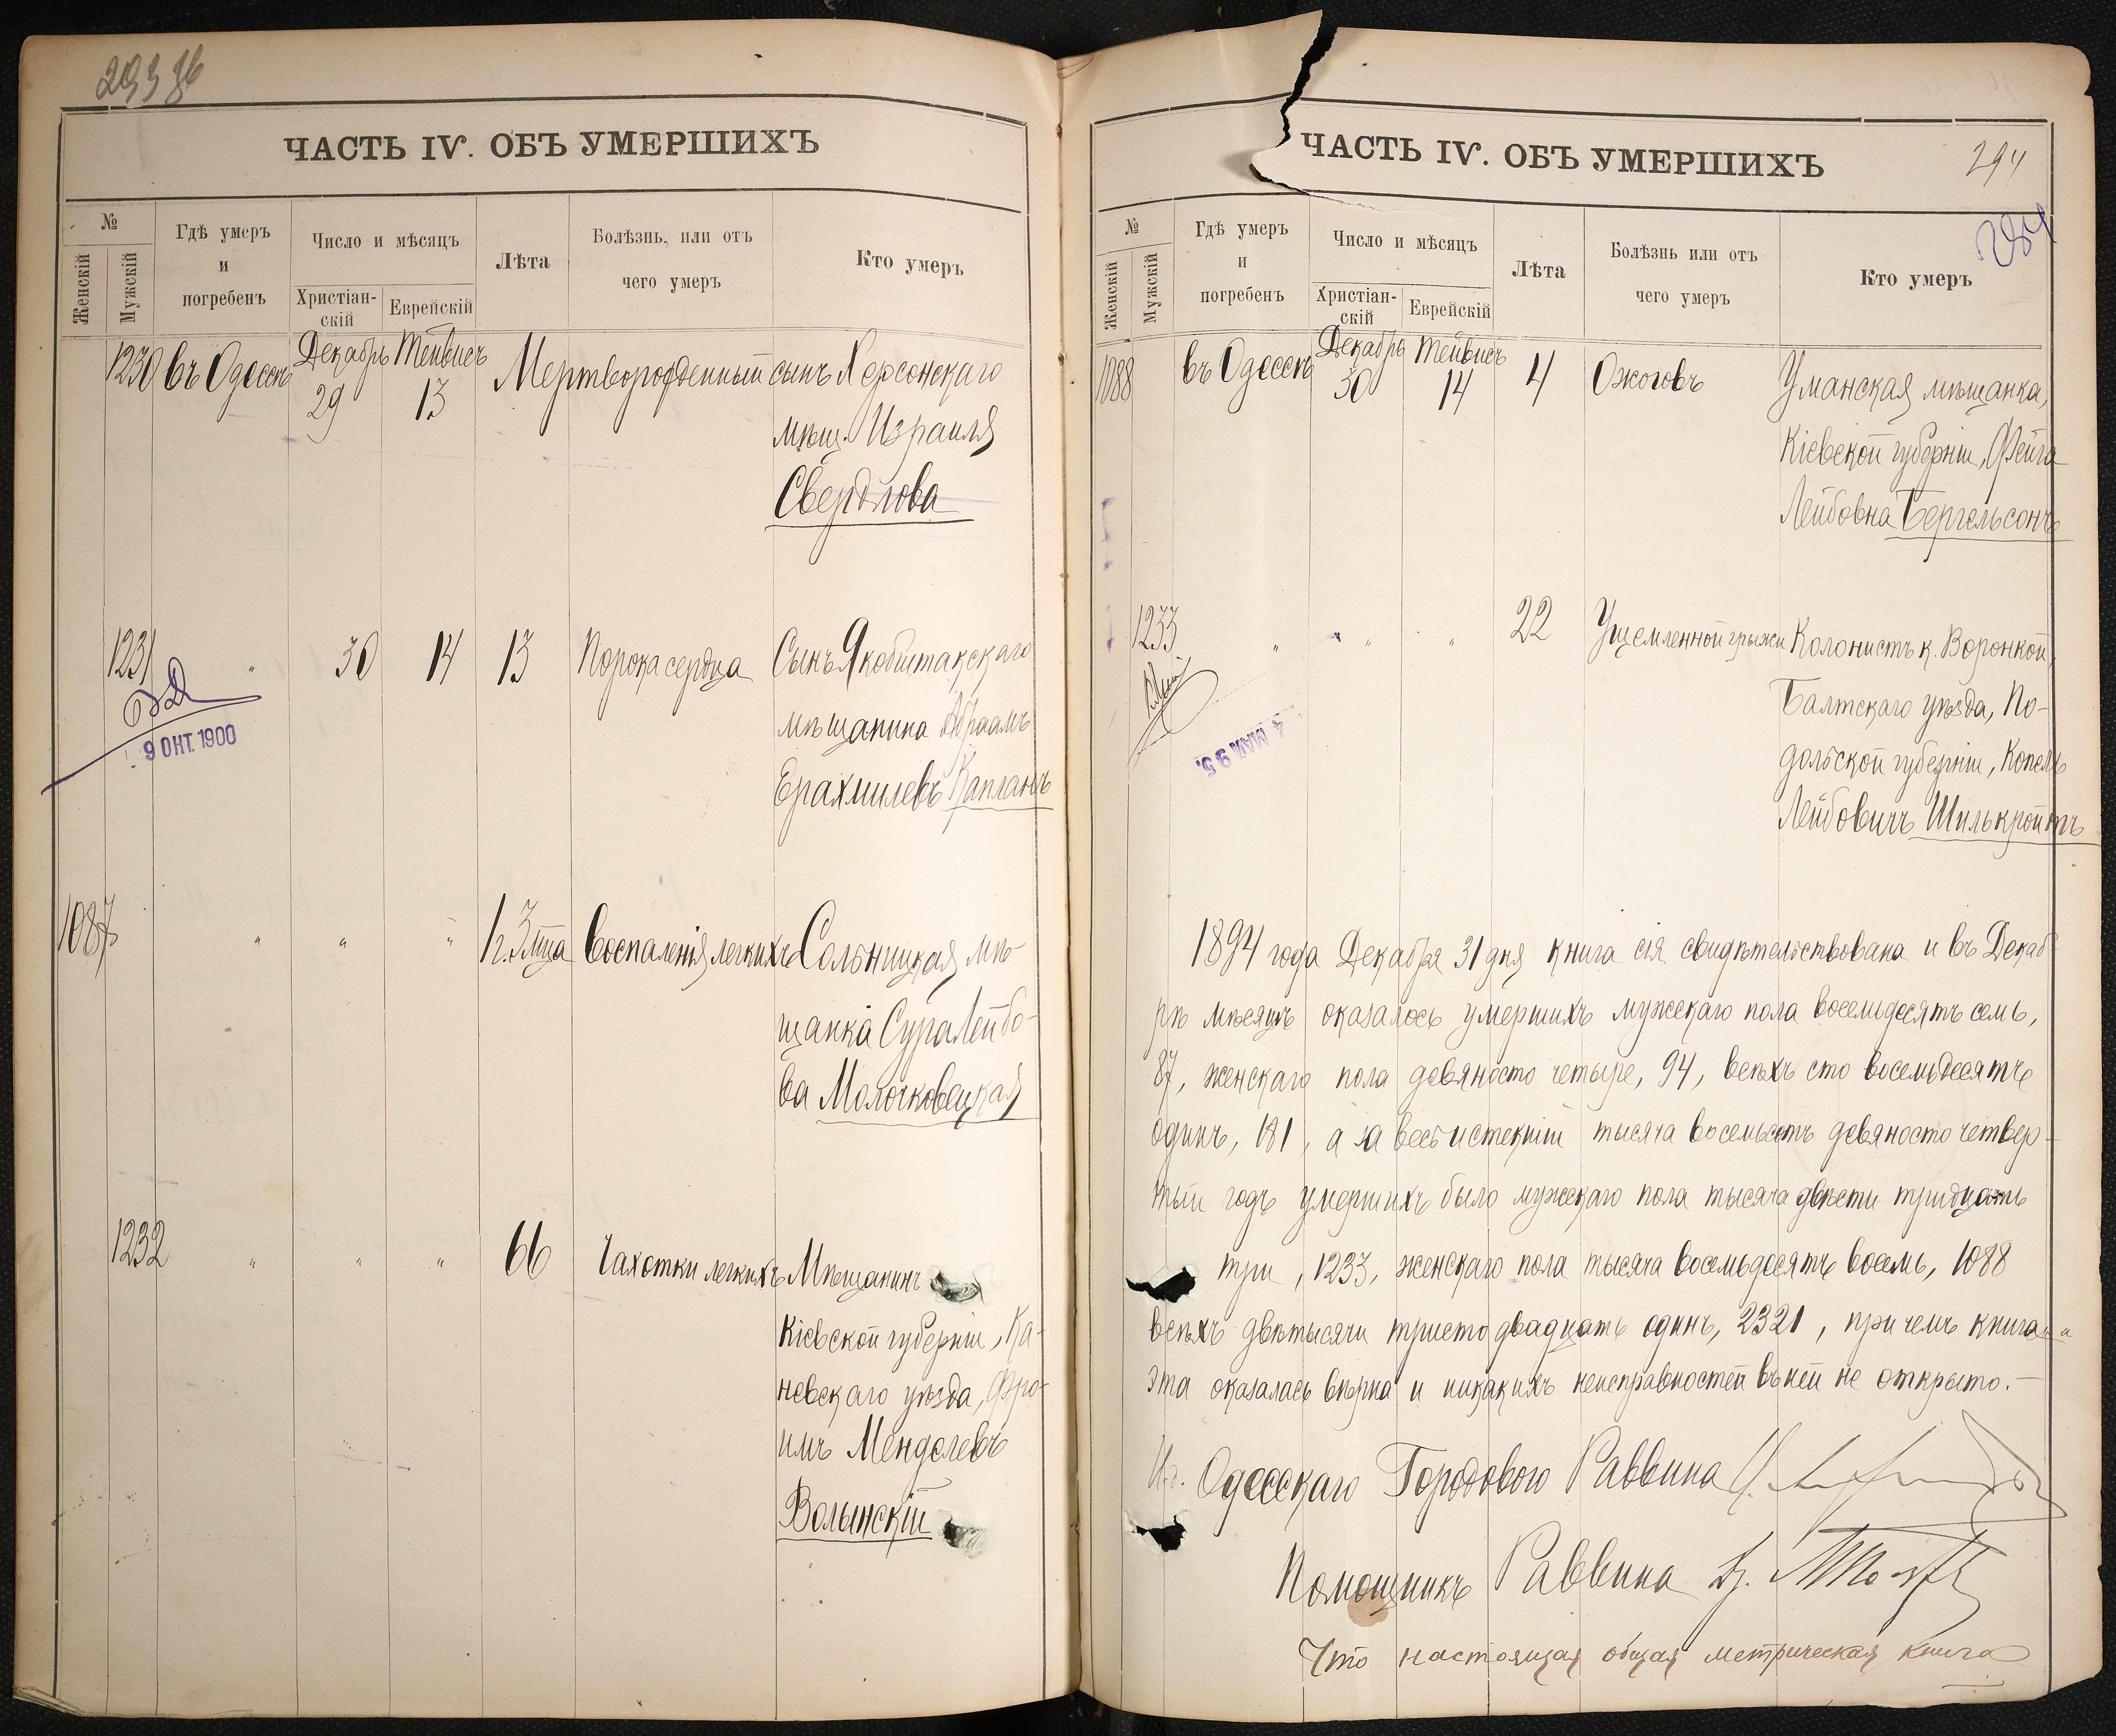 ЧАСТЬ IV. ОБЪ УМЕРШИХЪ
№
Женскій
Мужскій
Гдѣ умеръ
и
погребенъ
Число и мѣсяцъ
Христіан-
скій
Еврейскій
Лѣта
Болѣзнь, или отъ
чего умеръ
Кто умеръ
1230 въ Одессѣ Декабрь 29 Тейвисъ 13 Мертворожденный сынъ Херсонскаго
мѣщ. Израиля
Свердлова
1231 " 30 14 13 Порока сердца Сынъ Якобштакскаго
мѣщанина Абраамъ
Ерахмилевъ Капланъ
9 ОКТ. 1900
1087 " " " 1 г. 3 мца Воспаленія легкихъ Сольницкая мѣ-
щанка Сура Лейбо-
ва Молочковецкая
1232 " " " 66 Чахотки легкихъ Мѣщанинъ
Кіевской губерніи, Ка-
невскаго уѣзда, Фро-
имъ Менделевъ
Волынскій
ЧАСТЬ IV. ОБЪ УМЕРШИХЪ
294
№
Женскій
Мужскій
Гдѣ умеръ
и
погребенъ
Число и мѣсяцъ
Христіан-
скій
Еврейскій
Лѣта
Болѣзнь или отъ
чего умеръ
Кто умеръ
1088 въ Одессѣ Декабрь 30 Тейвисъ 14 4 Ожоговъ Уманская мѣщанка,
Кіевской губерніи, Фейга
Лейбовна Бергельсонъ
1233 " " " " 22 Ущемленной грыжи Колонистъ к. Воронкой,
Балтскаго уѣзда, По-
дольской губерніи, Копель
Лейбовичъ Шилькройтъ
4 МАЯ 95.
1894 года Декабря 31 дня книга сія свидѣтельствована и въ Декаб
рѣ мѣсяцѣ оказалось умершихъ мужскаго пола восемьдесятъ семь,
87, женскаго пола девяносто четыре, 94, всѣхъ сто восемьдесятъ
одинъ, 181, а за весь истекшій тысяча восемьсотъ девяносто четвер-
тый годъ умершихъ было мужскаго пола тысяча двѣсти тридцать
три, 1233, женскаго пола тысяча восемьдесятъ восемь, 1088
всѣхъ двѣ тысячи триста двадцать одинъ, 2321, при чемъ книга
эта оказалась вѣрна и никакихъ неисправностей въ ней не открыто.-
И. г. Одесскаго Городового Раввина
Помощникъ Раввина
Что настоящая общая метрическая книга